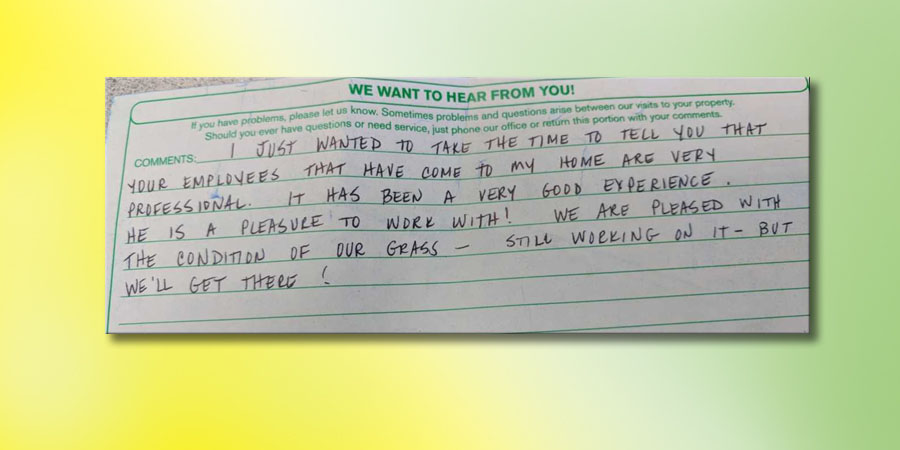 WE WANT TO HEAR FROM YOU!
If you have problems, please let us know. Sometimes problems and questions arise between our visits to your property.
Should you ever have questions or need service, just phone our office or return this portion with your comments.
COMMENTS: I JUST WANTED TO TAKE THE TIME TO TELL YOU THAT
YOUR EMPLOYEES THAT HAVE COME TO MY HOME ARE VERY
PROFESSIONAL. IT HAS BEEN A VERY GOOD EXPERIENCE.
HE IS A PLEASURE TO WORK WITH! WE ARE PLEASED WITH
THE CONDITION OF OUR GRASS — STILL WORKING ON IT - BUT
WE'LL GET THERE!